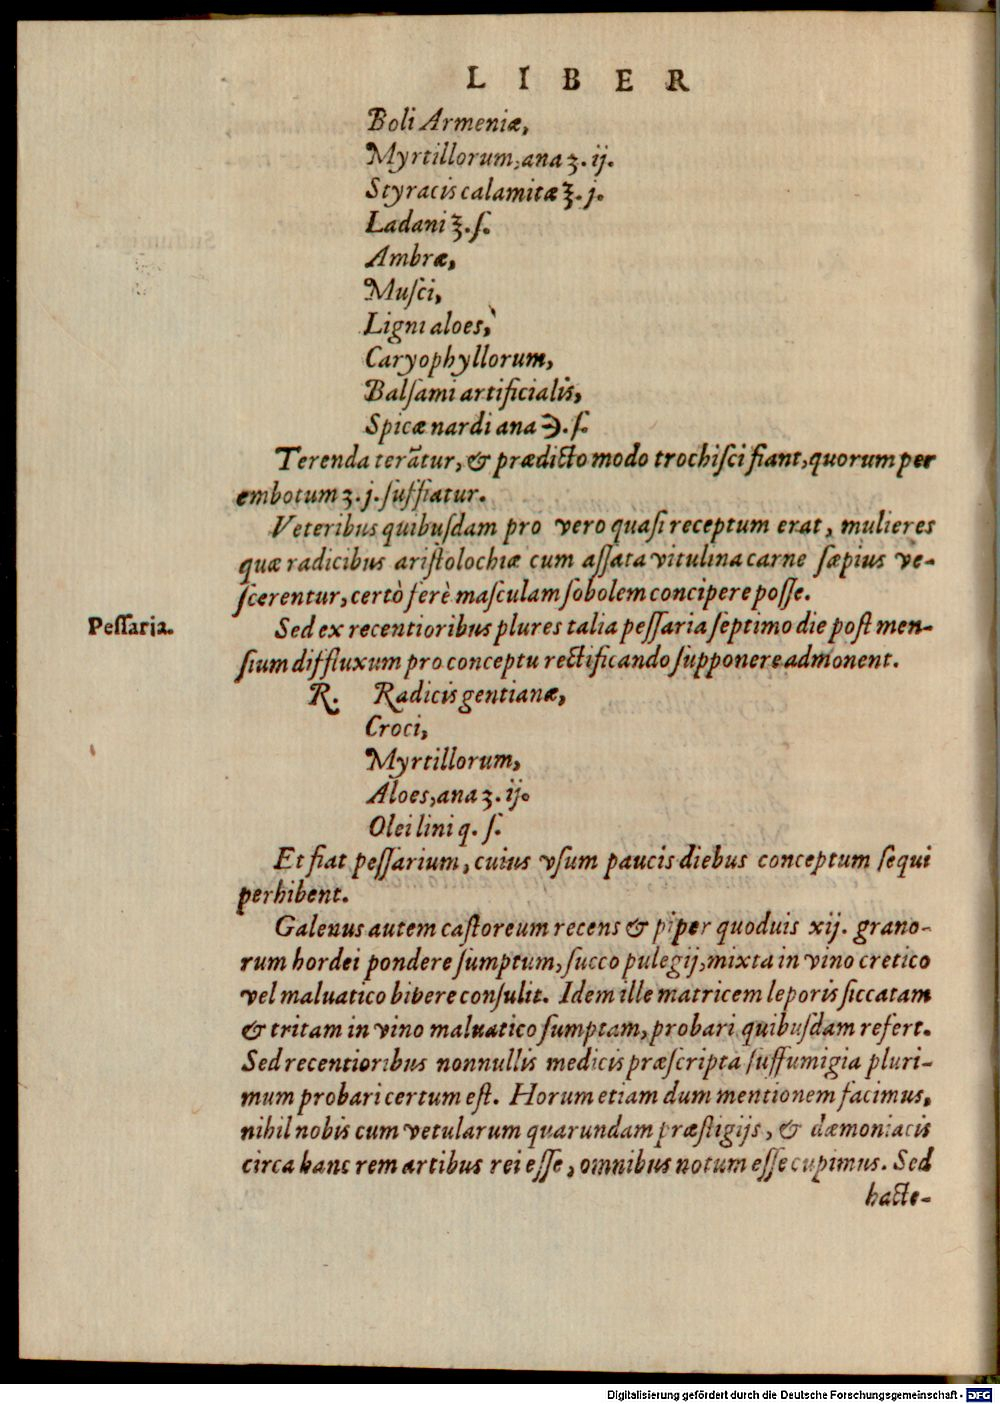 LIBER
Boli Armeniæ,
Myrtillorum, ana ʒ. ij.
Styracis calamitæ ℥. j.
Ladani ℥. ſ.
Ambræ,
Muſci,
Ligni aloes,
Caryophyllorum,
Balſami artificialis,
Spicæ nardi ana ℈. ſ.
Terenda terãtur, & prædicto modo trochiſci fiant, quorum per
embotum ʒ. j. ſuffiatur.
Veteribus quibuſdam pro vero quaſi receptum erat, mulieres
quæ radicibus ariſtolochiæ cum aſſata vitulina carne ſæpius ve-
ſcerentur, certò ferè maſculam ſobolem concipere poſſe.
Peſſaria.
Sed ex recentioribus plures talia peſſaria ſeptimo die poſt men-
ſium diffluxum pro conceptu rectificando ſupponere admonent.
R. Radicis gentianæ,
Croci,
Myrtillorum,
Aloes, ana ʒ. ij.
Olei lini q. ſ.
Et fiat peſſarium, cuius vſum paucis diebus conceptum ſequi
perhibent.
Galenus autem caſtoreum recens & piper quoduis xij. grano-
rum hordei pondere ſumptum, ſucco pulegij, mixta in vino cretico
vel maluatico bibere conſulit. Idem ille matricem leporis ſiccatam
& tritam in vino maluatico ſumptam, probari quibuſdam refert.
Sed recentioribus nonnullis medicis præſcripta ſuffumigia pluri-
mum probari certum eſt. Horum etiam dum mentionem facimus,
nihil nobis cum vetularum quarundam præſtigijs, & dæmoniacis
circa hanc rem artibus rei eſſe, omnibus notum eſſe cupimus. Sed
hacte-
Digitalisierung gefördert durch die Deutsche Forschungsgemeinschaft - DFG